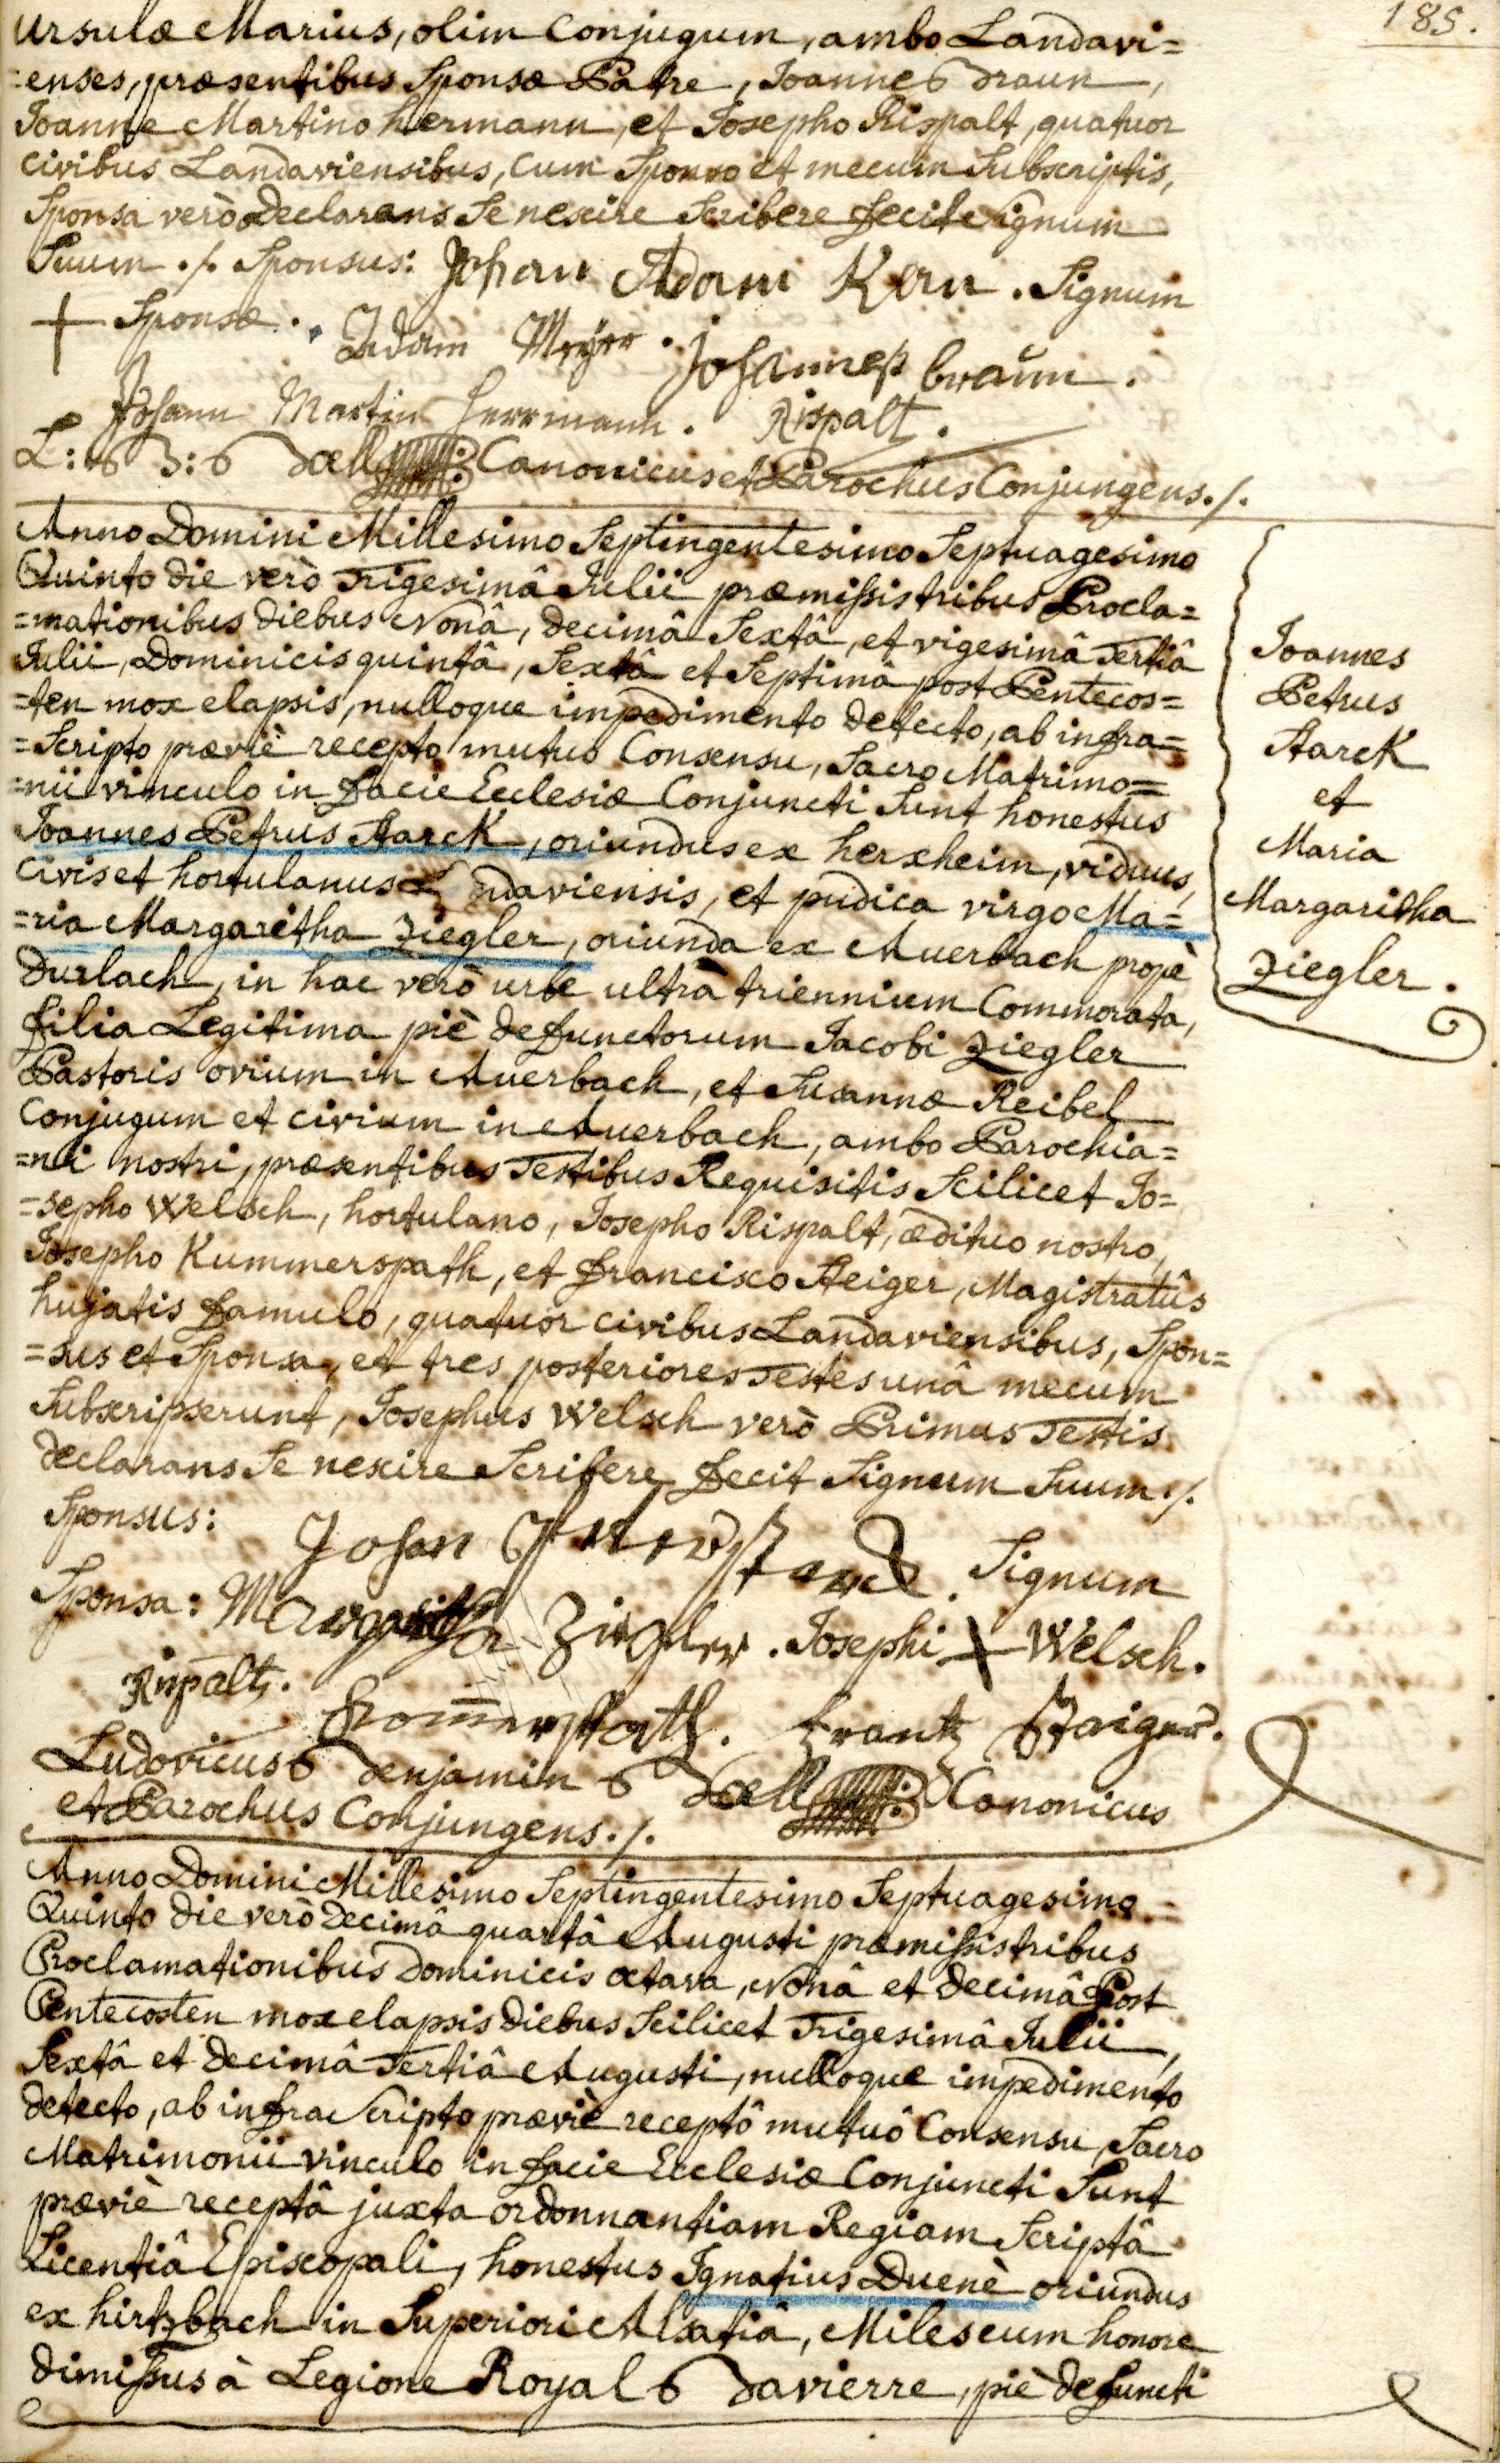 185.
Ursulæ Marius, olim Conjugum, ambo Landavi=
=enses, præsentibus Sponsæ Patre, Joanne Braun,
Joanne Martino hermann, et Josepho Rispalt, quatuor
Civibus Landaviensibus, Cum Sponso et mecum Subscriptis,
Sponsa verò Declarans Se nescire Scribere fecit Signum
Suum ./. Sponsus: Johan Adam Kern . Signum
+ Sponsæ . Adam Meÿer . Johannes braun .
Johann Martin Herrmann . Rispalt .
L: B: Boell Canonicus et Parochus Conjungens ./.
Anno Domini Millesimo Septingentesimo Septuagesimo
Quinto die verò Trigesimâ Julii præmissis tribus Procla=
=mationibus diebus Nonâ, decimâ Sextâ, et vigesimâ Tertiâ
Julii, Dominicis quintâ, Sextâ et Septimâ post Pentecos=
=ten mox elapsis, nulloque impedimento detecto, ab infra=
=Scripto præviè recepto mutuo Consensu, Sacro Matrimo=
=nii vinculo in facie Ecclesiæ Conjuncti Sunt honestus
Joannes Petrus Starck, oriundus ex herxheim, viduus,
Civis et hortulanus Landaviensis, et pudica virgo Ma=
=ria Margaretha Ziegler, oriunda ex Auerbach propè
Durlach, in hac verò urbe ultrà triennium Commorata,
filia Legitima piè defunctorum Jacobi Ziegler
Pastoris ovium in Auerbach, et Susannæ Reibel
Conjugum et civium in Auerbach, ambo Parochia=
=ni nostri, præsentibus Testibus Requisitis Scilicet Jo=
=sepho Welsch, hortulano, Josepho Rispalt, ædituo nostro,
Josepho Kummerspath, et Francisco Steiger, Magistratûs
hujatis famulo, quatuor civibus Landaviensibus, Spon=
=sus et Sponsa, et tres posteriores Testes unâ mecum
Subscripserunt, Josephus Welsch verò Primus Testis
declarans Se nescire Scribere fecit Signum Suum ./.
Sponsus: Johan Starck . Signum
Sponsa: Margaritha Ziegler . Josephi + Welsch .
Rispalt . Frantz Staiger .
Ludovicus Benjamin Boell Canonicus
et Parochus Conjungens ./.
Joannes
Petrus
Starck
et
Maria
Margaritha
Ziegler .
Anno Domini Millesimo Septingentesimo Septuagesimo =
Quinto die verò Decimâ quartâ Augusti præmissis tribus
Proclamationibus Dominicis octava, Nonâ et decimâ Post
Pentecosten mox elapsis diebus Scilicet Trigesimâ Julii,
Sextâ et decimâ Tertiâ Augusti, nulloque impedimento
detecto, ab infra Scripto præviè receptô mutuô Consensu, Sacro
Matrimonii vinculo in facie Ecclesiæ Conjuncti Sunt
præviè receptâ juxta ordonnantiam Regiam Scriptâ
Licentiâ Episcopali, honestus Ignatius Duenè oriundus
ex hirtzbach in Superiori Alsatiâ, Miles cum honore
dimissus à Legione Royal Bavierre, piè defuncti